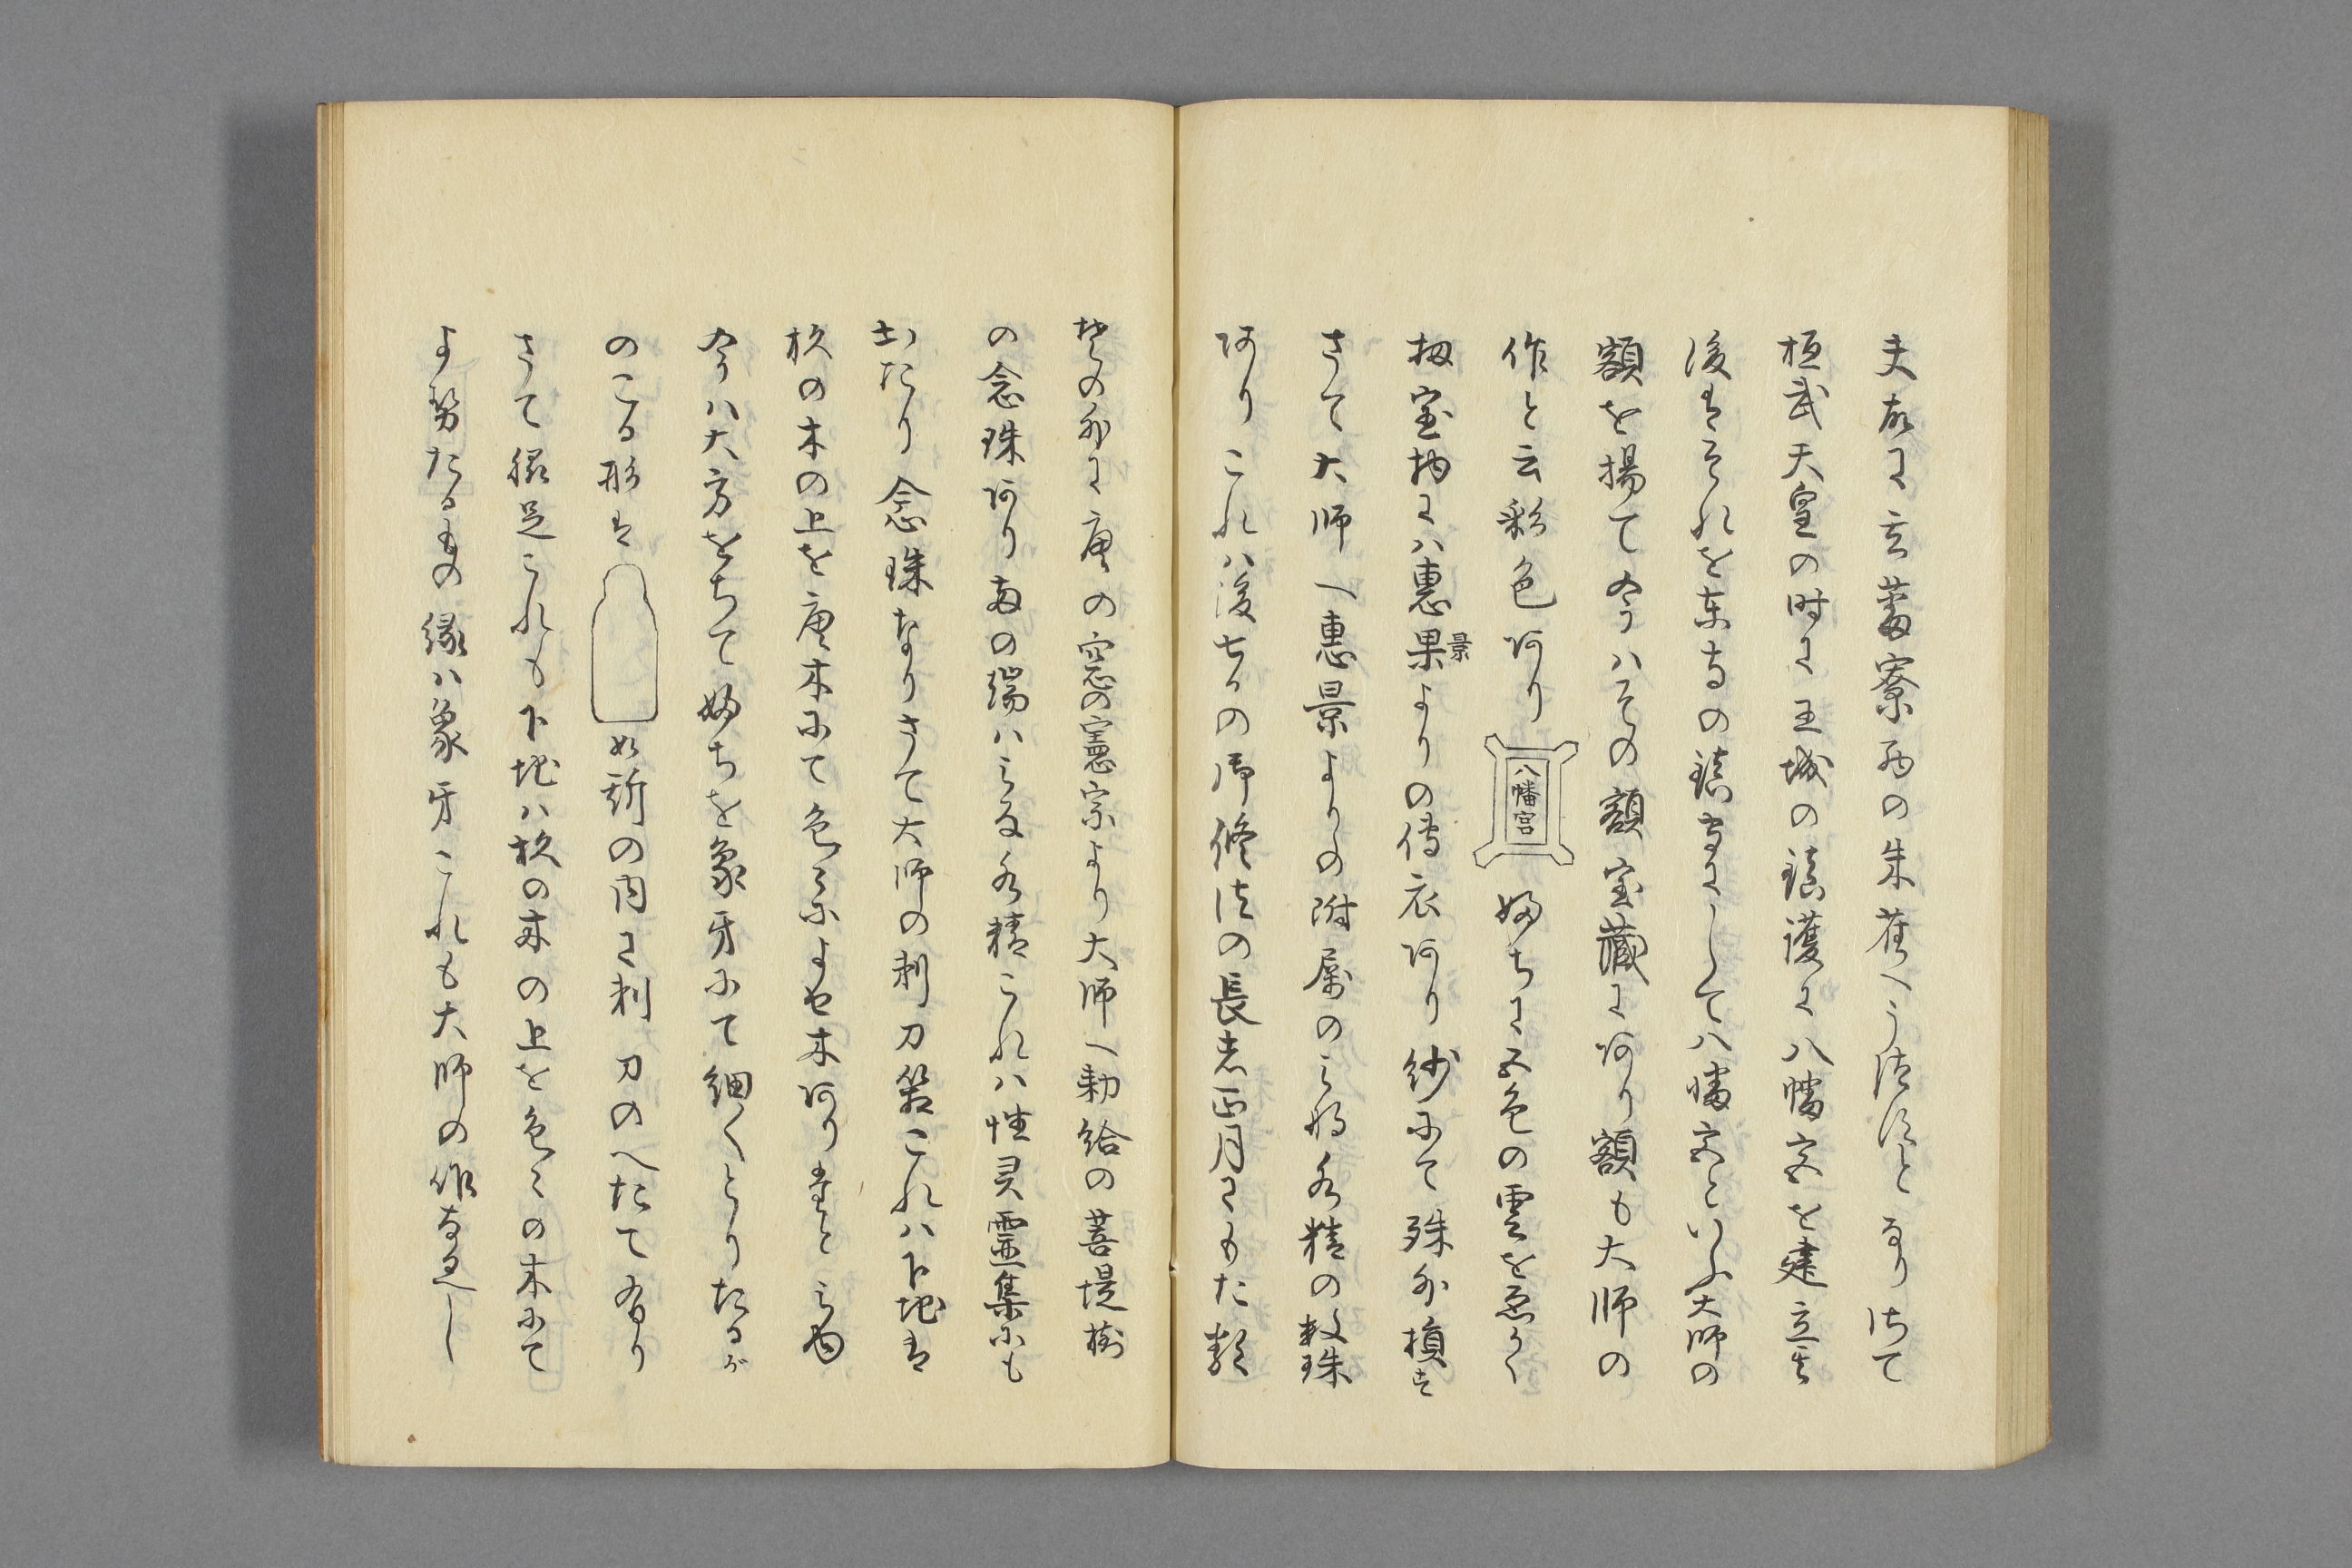 夫故に玄蕃寮西の朱雀へうつすとなりさて
桓武天皇の時に王城の鎮護に八幡宮を建立其
後はそれを東寺の鎮守にして八幡宮といふ大師の
額を揚て今ハその額宝蔵に有り額も大師の
作と云彩色阿り八幡宮ふちに五色の雲をゑかく
扨宝物にハ惠果景よりの傳衣阿り紗にて殊外損す
さて大師へ惠景よりの附属の水精の数珠
阿りこれハ後七日の御修法の長者正月にもた
その外に唐の憲宗より大師へ勅給の菩提樹
の念珠阿り両の端ハ水精これハ性灵靈集にも
出たり念珠なりさて大師の剃刀箱これハ下地は
杦の木の上を唐木にて色々によせ木阿り
今ハ大方をちて婦ちを象牙にて細くとりたるが
のこる形は如斯の内に剃刀のへたて有り
さて脇足これも下地ハ杦の木の上を色々の木にて
よせたるもの縁ハ象牙これも大師の作なるへし